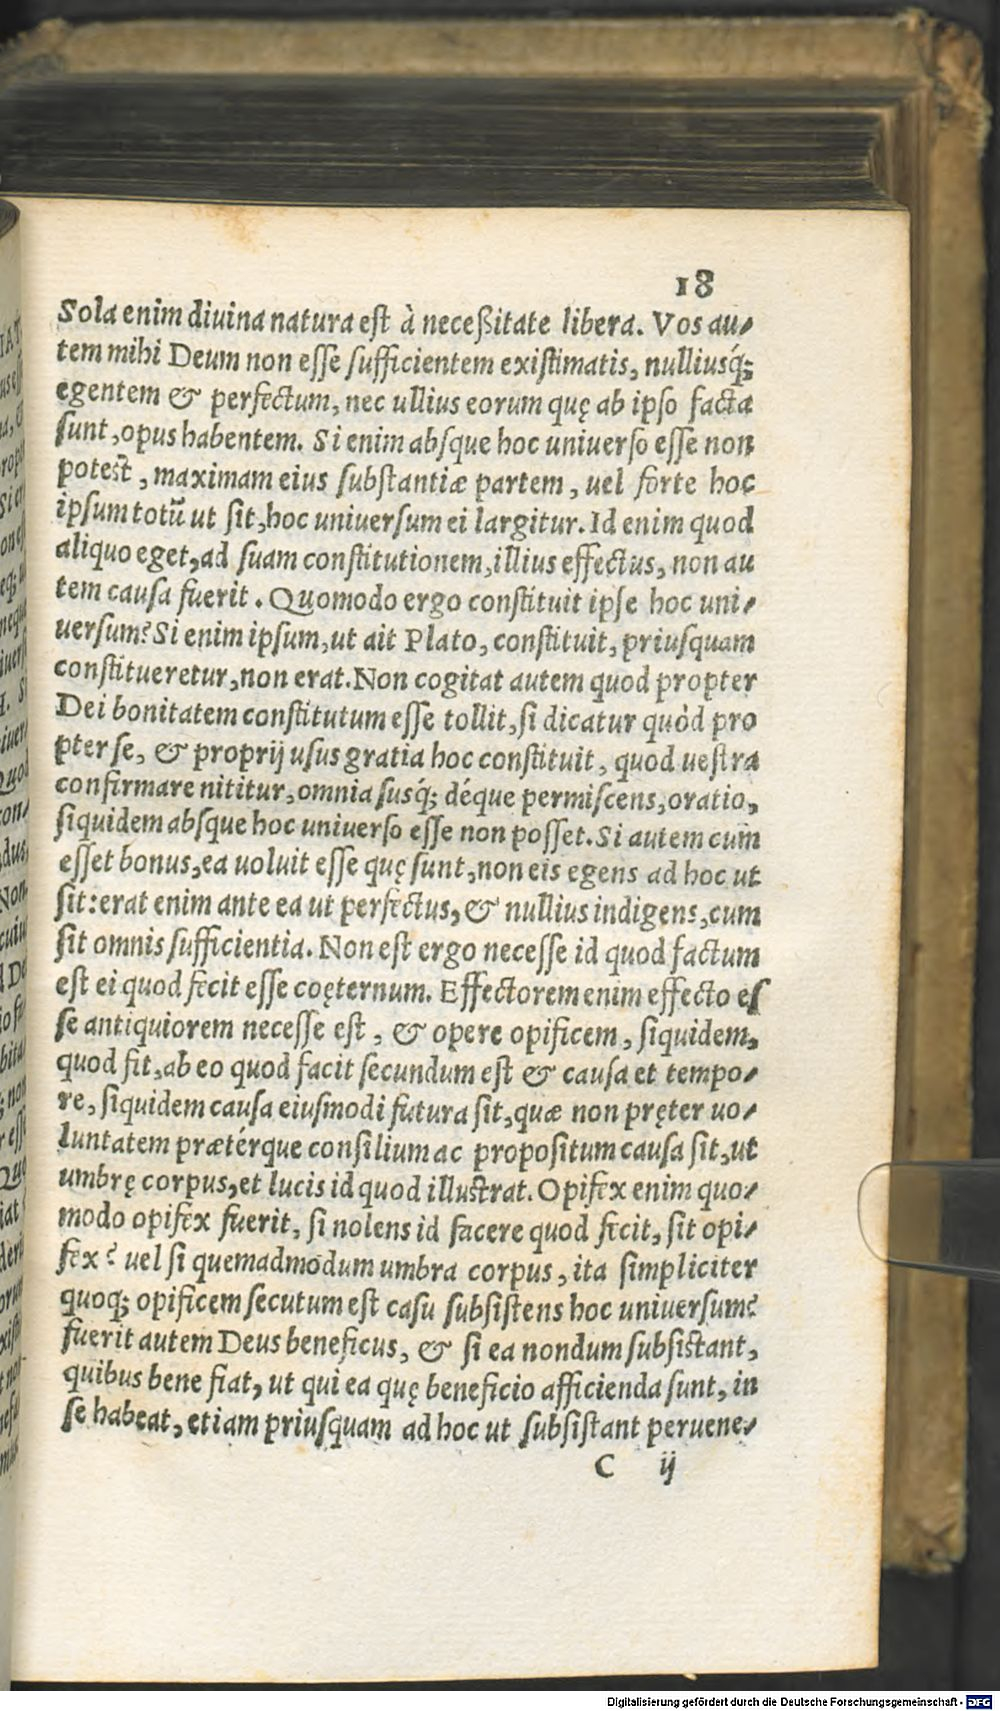 18
Sola enim divina natura est à neceßitate libera. Vos au-
tem mihi Deum non esse sufficientem existimatis, nulliusq́;
egentem & perfectum, nec ullius eorum quę ab ipso facta
sunt, opus habentem. Si enim absque hoc universo esse non
potest, maximam eius substantiæ partem, uel forte hoc
ipsum totũ ut sit, hoc universum ei largitur. Id enim quod
aliquo eget, ad suam constitutionem, illius effectus, non au
tem causa fuerit. Quomodo ergo constituit ipse hoc uni-
uersum? Si enim ipsum, ut ait Plato, constituit, priusquam
constitueretur, non erat. Non cogitat autem quod propter
Dei bonitatem constitutum esse tollit, si dicatur quòd pro
pter se, & proprij usus gratia hoc constituit, quod uestra
confirmare nititur, omnia susq́; déque permiscens, oratio,
siquidem absque hoc universo esse non posset. Si autem cum
esset bonus, ea uoluit esse quę sunt, non eis egens ad hoc ut
sit: erat enim ante ea ut perfectus, & nullius indigens, cum
sit omnis sufficientia. Non est ergo necesse id quod factum
est ei quod fecit esse coęternum. Effectorem enim effecto es
se antiquiorem necesse est, & opere opificem, siquidem,
quod fit, ab eo quod facit secundum est & causa et tempo-
re, siquidem causa eiusmodi futura sit, quæ non pręter uo-
luntatem prætérque consilium ac propositum causa sit, ut
umbrę corpus, et lucis id quod illustrat. Opifex enim quo-
modo opifex fuerit, si nolens id facere quod fecit, sit opi-
fex? uel si quemadmodum umbra corpus, ita simpliciter
quoq; opificem secutum est casu subsistens hoc universum?
fuerit autem Deus beneficus, & si ea nondum subsistant,
quibus bene fiat, ut qui ea quę beneficio afficienda sunt, in
se habeat, etiam priusquam ad hoc ut subsistant peruene-
C ij
Digitalisierung gefördert durch die Deutsche Forschungsgemeinschaft - DFG